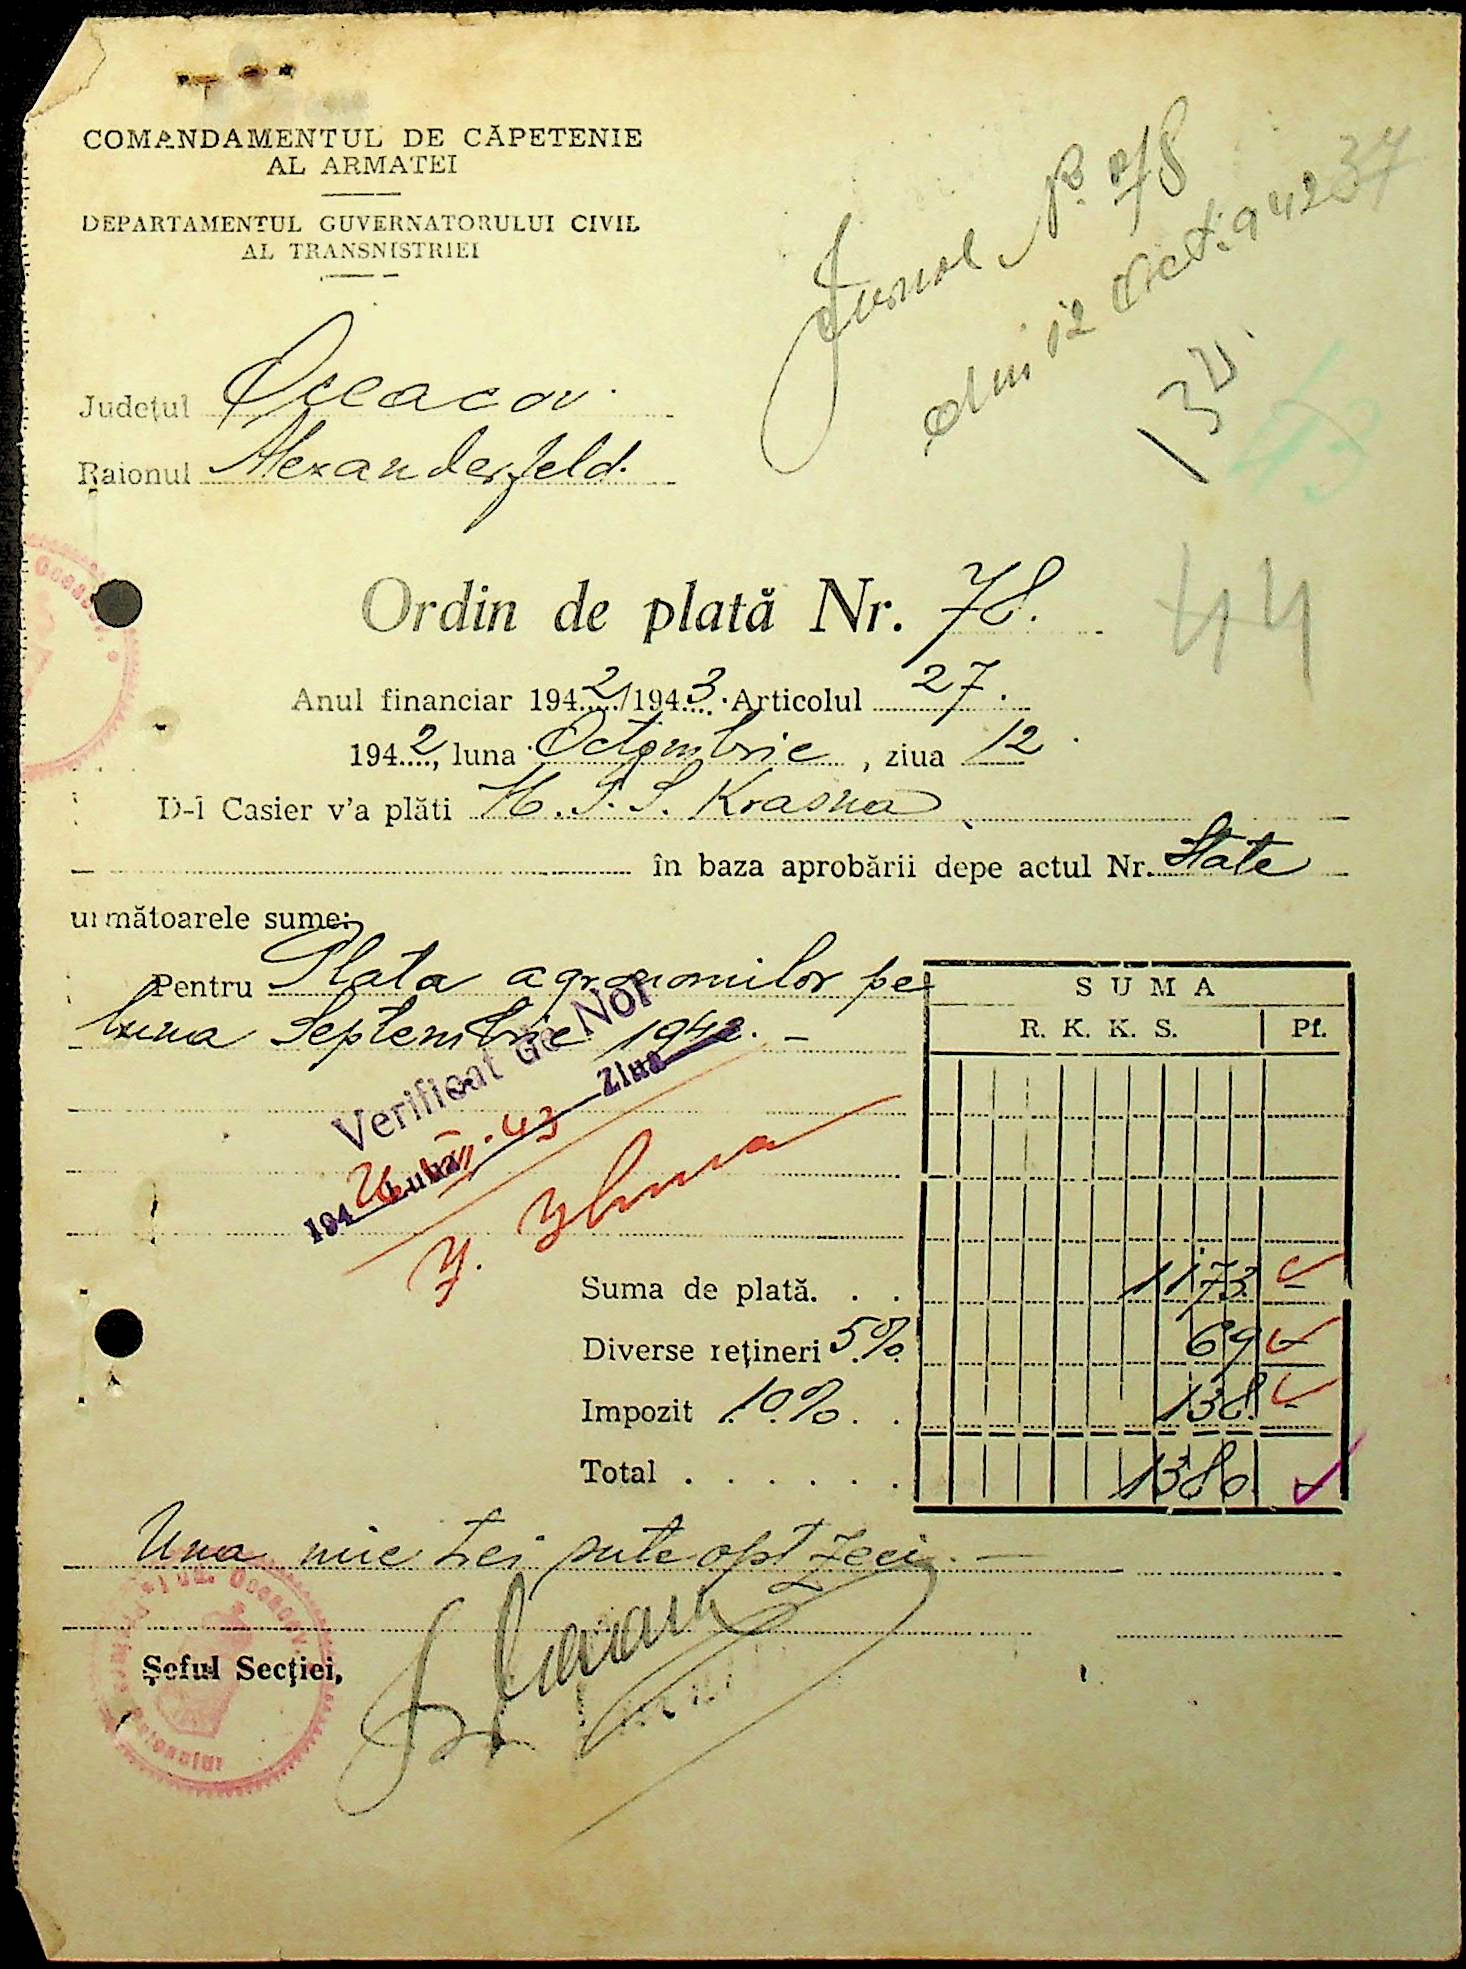 COMANDAMENTUL DE CĂPETENIE
AL ARMATEI
DEPARTAMENTUL GUVERNATORULUI CIVIL
AL TRANSNISTRIEI
Jurnal No. 78
din 12 Oct. 942
37
134.
43
44
Județul Oceacov.
Raionul Alexanderfeld.
Ordin de plată Nr. 78.
Anul financiar 1942/1943. Articolul 27.
1942, luna Octombrie, ziua 12.
D-l Casier v'a plăti M.T.S. Krasna
în baza aprobării depe actul Nr. State
următoarele sume:
Pentru Plata agronomilor pe
luna Septembrie 1942. —
SUMA
R. K. K. S. Pf.
Verificat de Noi
194 Luna Ziua
26 43
Suma de plată. . . 1173 —
Diverse rețineri 5% 69 —
Impozit 10% . . 138. —
Total . . . . . . 1380
Una mie trei sute opt zeci. —
Șeful Secției,